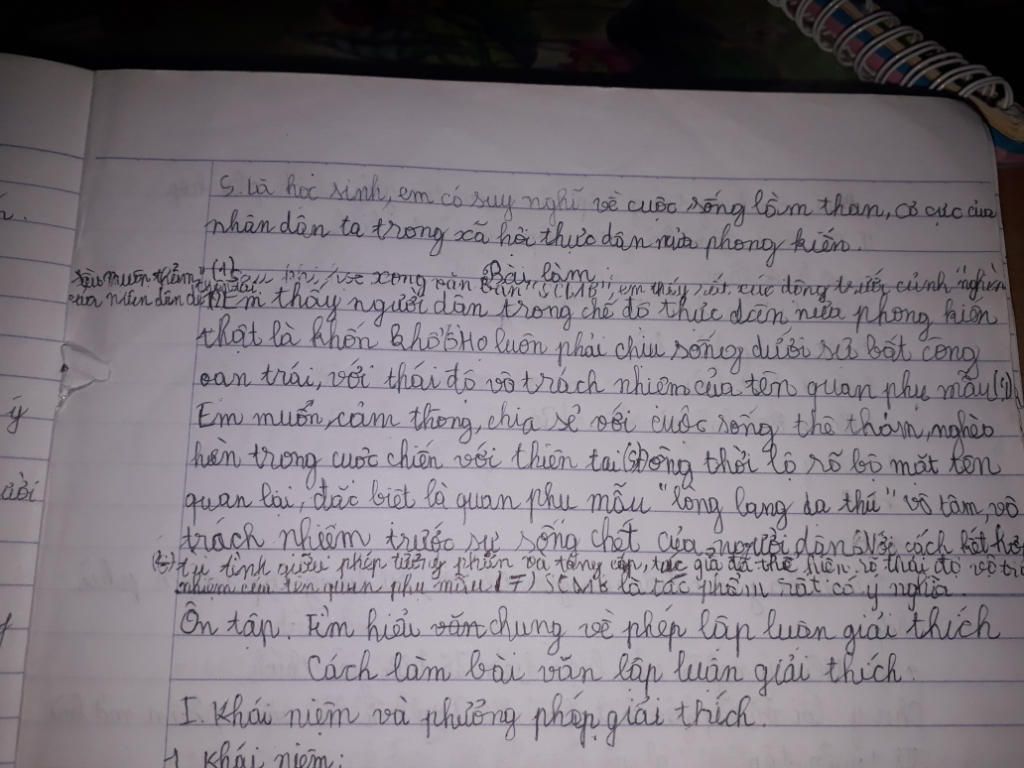 5. Là học sinh, em có suy nghĩ về cuộc sống lầm than, cơ cực của
nhân dân ta trong xã hội thực dân nửa phong kiến.
Bài làm:
sầu muôn thảm" (1) xong văn bản "SCMB" em thấy rất xúc động trước cảnh "nghìn
của nhân dân Em thấy người dân trong chế độ thực dân nửa phong kiến
thật là khốn khổ (3) Họ luôn phải chịu sống dưới sự bất công
oan trái, với thái độ vô trách nhiệm của tên quan phụ mẫu
Em muốn cảm thông, chia sẻ với cuộc sống thê thảm, nghèo
hèn trong cuộc chiến với thiên tai (5) Đồng thời lộ rõ bộ mặt tên
quan lại, đặc biệt là quan phụ mẫu "lòng lang dạ thú" vô tâm, vô
trách nhiệm trước sự sống chết của người dân. Với cách kết hợp
từ tình giữa phép tương phản và tăng cấp, tác giả đã thể hiện rõ thái độ vô trách
nhiệm của tên quan phụ mẫu (7) SCMB là tác phẩm rất có ý nghĩa.
Ôn tập. Tìm hiểu văn chung về phép lập luận giải thích
Cách làm bài văn lập luận giải thích.
I. Khái niệm và phương pháp giải thích.
1. Khái niệm:
ý